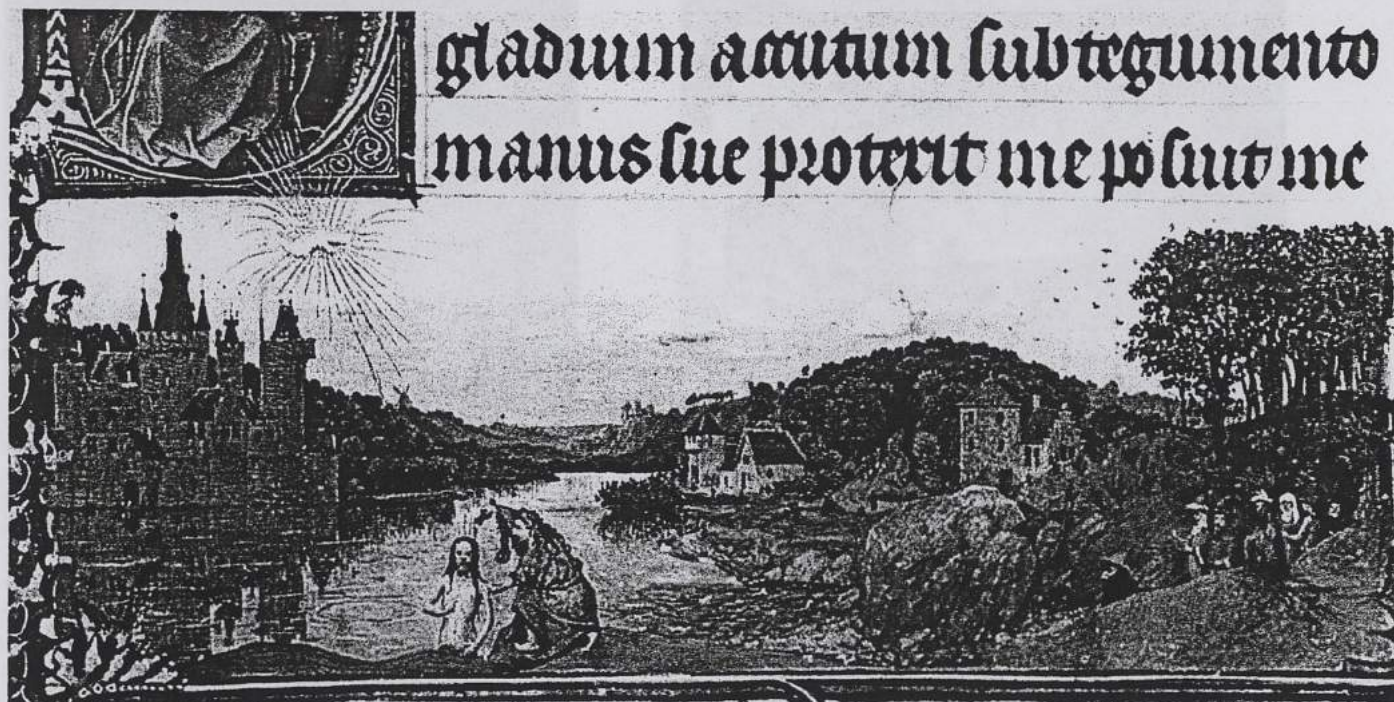 gladium acutum sub tegumento
manus sue protexit me posuit me